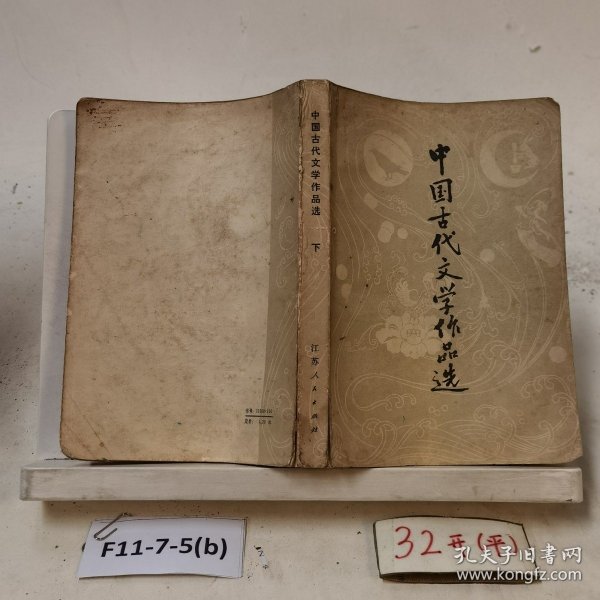 中国古代文学作品选
下
江苏人民出版社
中国古代文学作品选
F11-7-5(b)
32开(平)
孔夫子旧书网
www.kongfz.com